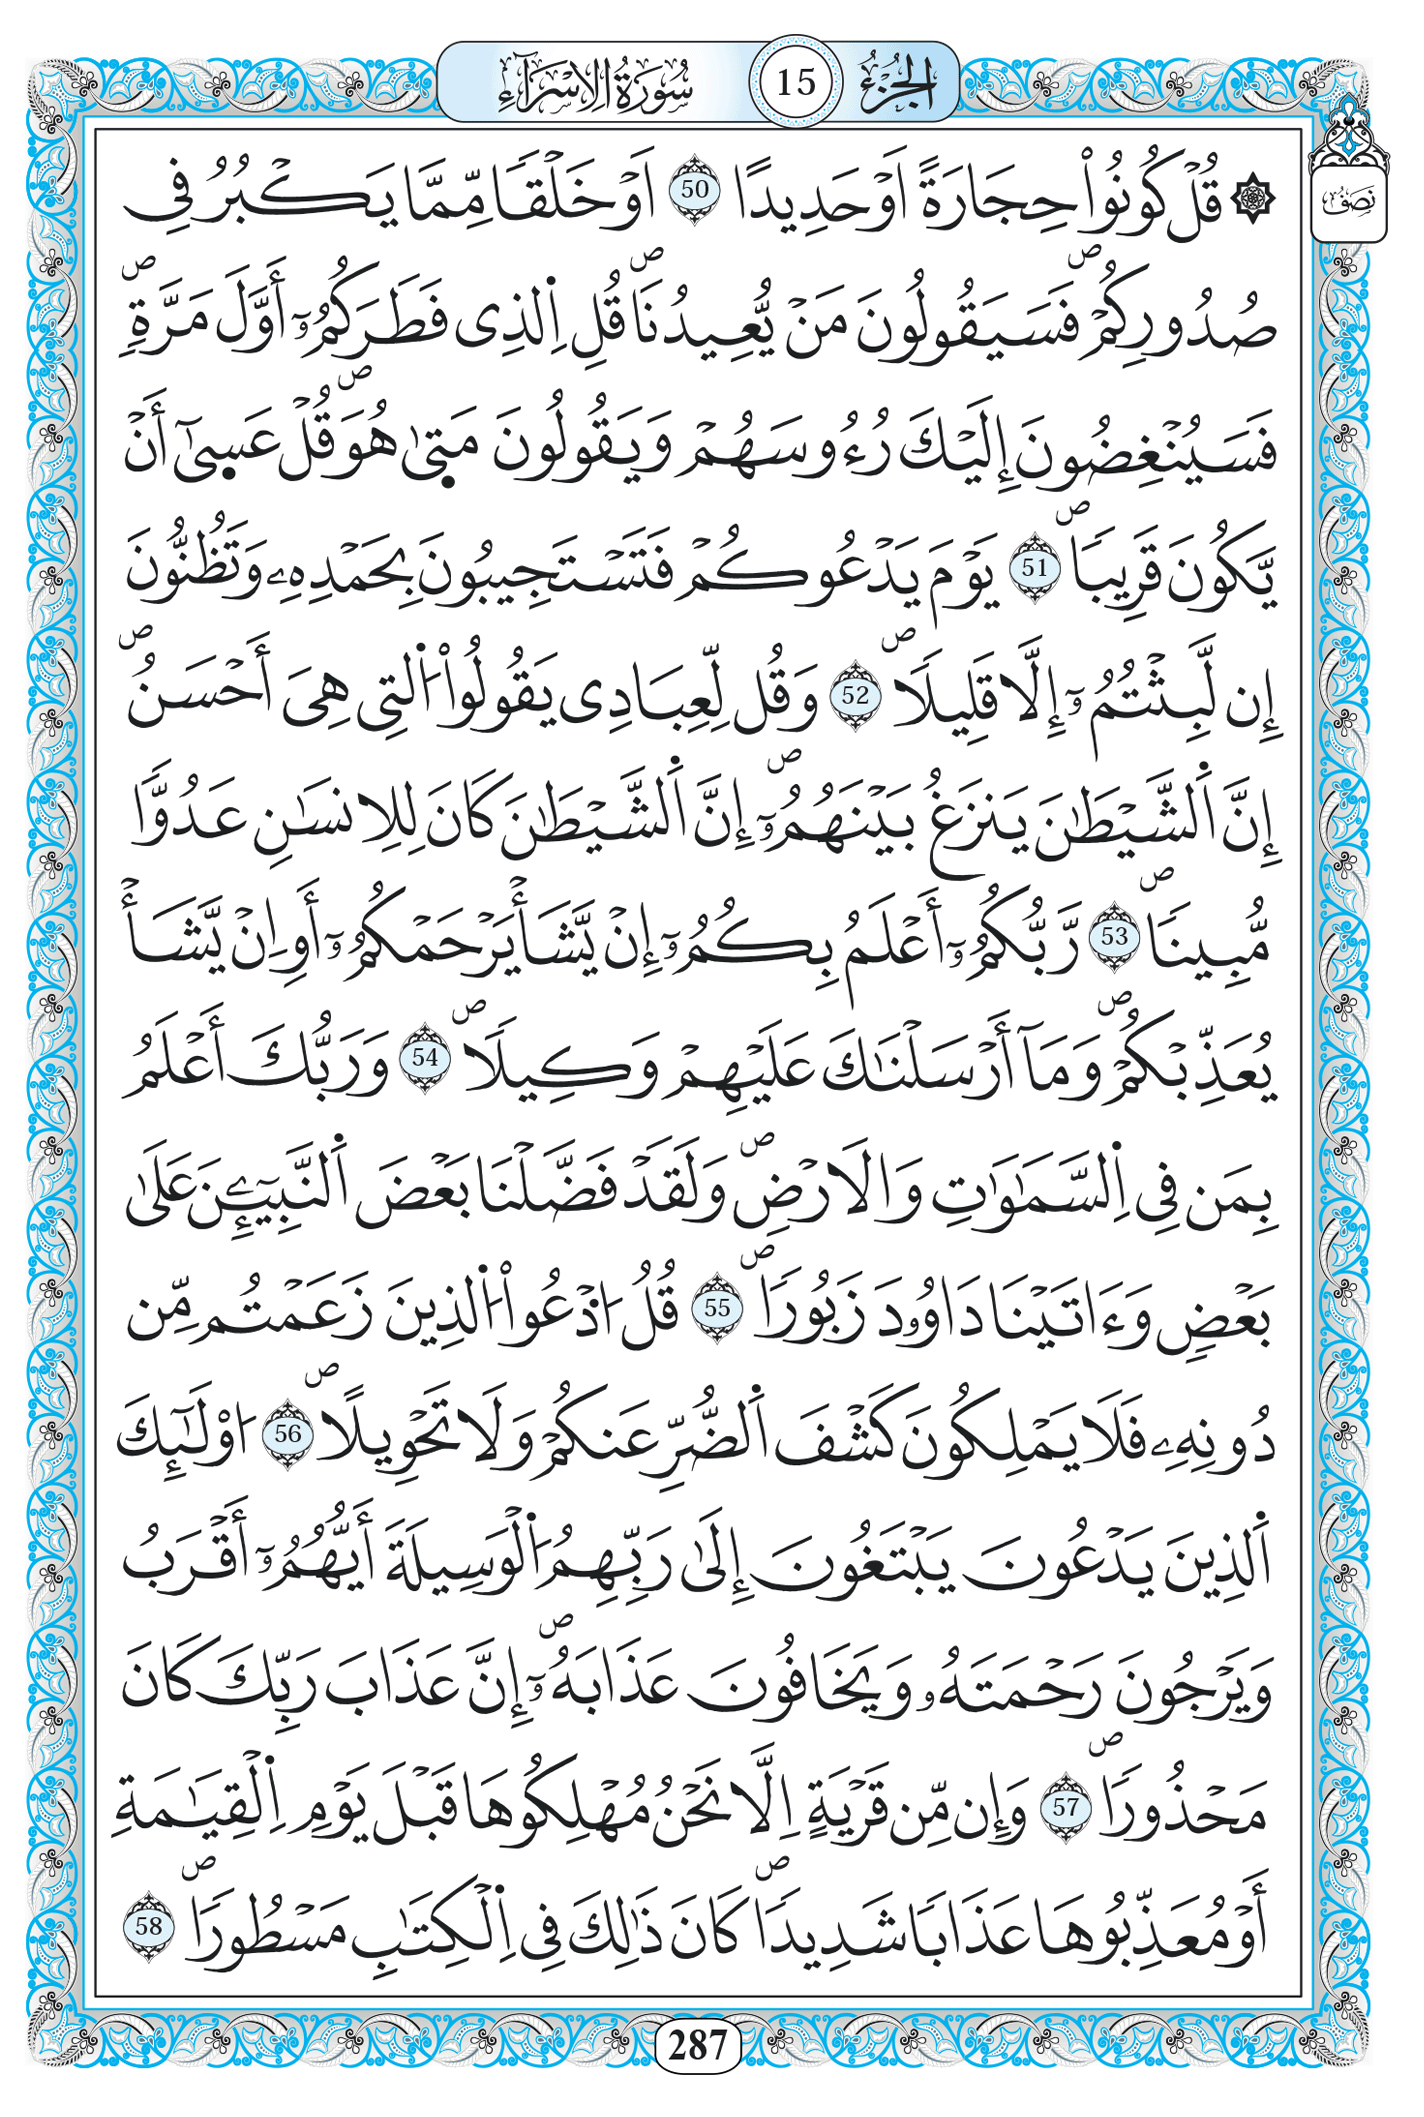 الجزء 15 سورة الإسراء
نصف
۞ قُلْ كُونُواْ حِجَارَةً اَوْ حَدِيدًا 50 اَوْ خَلْقاٗ مِّمَّا يَكْبُرُ فِى
صُدُورِكُمْۖ فَسَيَقُولُونَ مَنْ يُّعِيدُنَاۖ قُلِ اِ۬لذِى فَطَرَكُمُۥٓ أَوَّلَ مَرَّةٖۖ
فَسَيُنْغِضُونَ إِلَيْكَ رُءُوسَهُمْ وَيَقُولُونَ مَتىٰ هُوَۖ قُلْ عَسىٰٓ أَنْ
يَّكُونَ قَرِيباٗۖ 51 يَوْمَ يَدْعُوكُمْ فَتَسْتَجِيبُونَ بِحَمْدِهِۦ وَتَظُنُّونَ
إِن لَّبِثْتُمُۥٓ إِلَّا قَلِيلاٗۖ 52 وَقُل لِّعِبَادِى يَقُولُواْ اُ۬لتِى هِىَ أَحْسَنُۖ
إِنَّ اَ۬لشَّيْطَٰنَ يَنزَغُ بَيْنَهُمُۥٓۖ إِنَّ اَ۬لشَّيْطَٰنَ كَانَ لِلِانسَٰنِ عَدُوّاٗ
مُّبِيناٗۖ 53 رَّبُّكُمُۥٓ أَعْلَمُ بِكُمُۥٓ إِنْ يَّشَأْ يَرْحَمْكُمُۥٓ أَوِ اِنْ يَّشَأْ
يُعَذِّبْكُمْۖ وَمَآ أَرْسَلْنَٰكَ عَلَيْهِمْ وَكِيلاٗۖ 54 وَرَبُّكَ أَعْلَمُ
بِمَن فِى اِ۬لسَّمَٰوَٰتِ وَالَارْضِۖ وَلَقَدْ فَضَّلْنَا بَعْضَ اَ۬لنَّبِيٓـِٕنَ عَلَىٰ
بَعْضٖ وَءَاتَيْنَا دَاوُۥدَ زَبُوراٗۖ 55 قُلُ اُ۟دْعُواْ اُ۬لذِينَ زَعَمْتُم مِّن
دُونِهِۦ فَلَا يَمْلِكُونَ كَشْفَ اَ۬لضُّرِّ عَنكُمْ وَلَا تَحْوِيلًاۖ 56 ا۟وْلَٰٓئِكَ
اَ۬لذِينَ يَدْعُونَ يَبْتَغُونَ إِلَىٰ رَبِّهِمُ اُ۬لْوَسِيلَةَ أَيُّهُمُۥٓ أَقْرَبُ
وَيَرْجُونَ رَحْمَتَهُۥ وَيَخَافُونَ عَذَابَهُۥٓۖ إِنَّ عَذَابَ رَبِّكَ كَانَ
مَحْذُوراٗۖ 57 وَإِن مِّن قَرْيَةٍ اِلَّا نَحْنُ مُهْلِكُوهَا قَبْلَ يَوْمِ اِ۬لْقِيَٰمَةِ
أَوْ مُعَذِّبُوهَا عَذَاباٗ شَدِيداٗۖ كَانَ ذَٰلِكَ فِى اِ۬لْكِتَٰبِ مَسْطُوراٗۖ 58
287